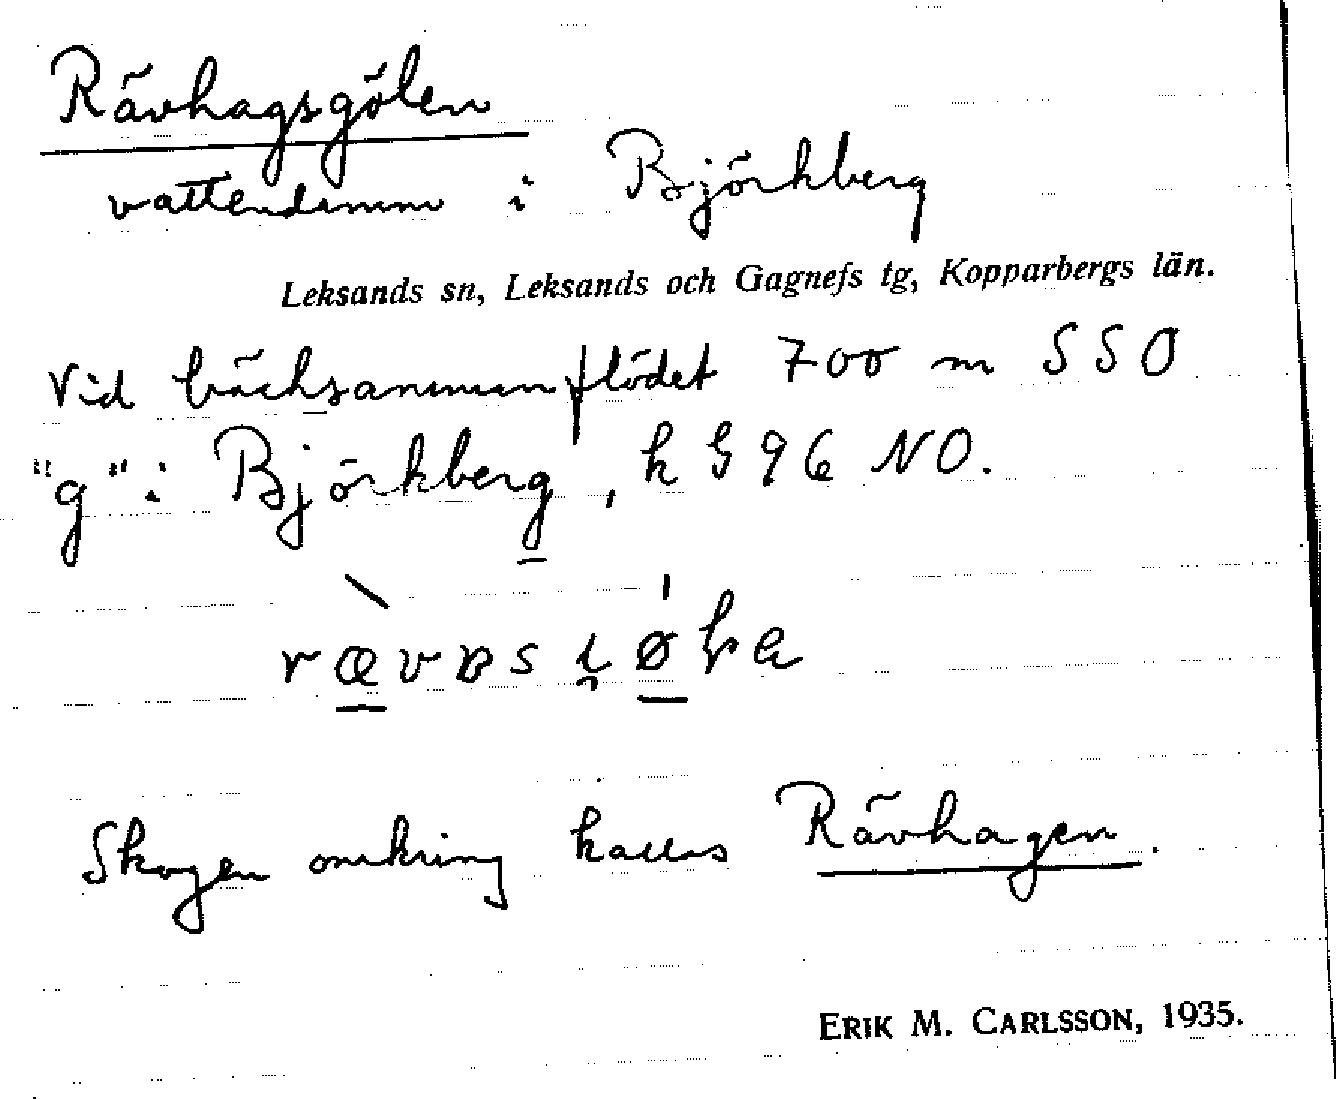 Rävhagsgölen
vattendamm i Björkberg
Leksands sn, Leksands och Gagnefs tg, Kopparbergs län.
Vid bäcksammanflödet 700 m SSO
"g" i Björkberg, k G 96 NO.
Skogen omkring kallas Rävhagen.
ERIK M. CARLSSON, 1935.